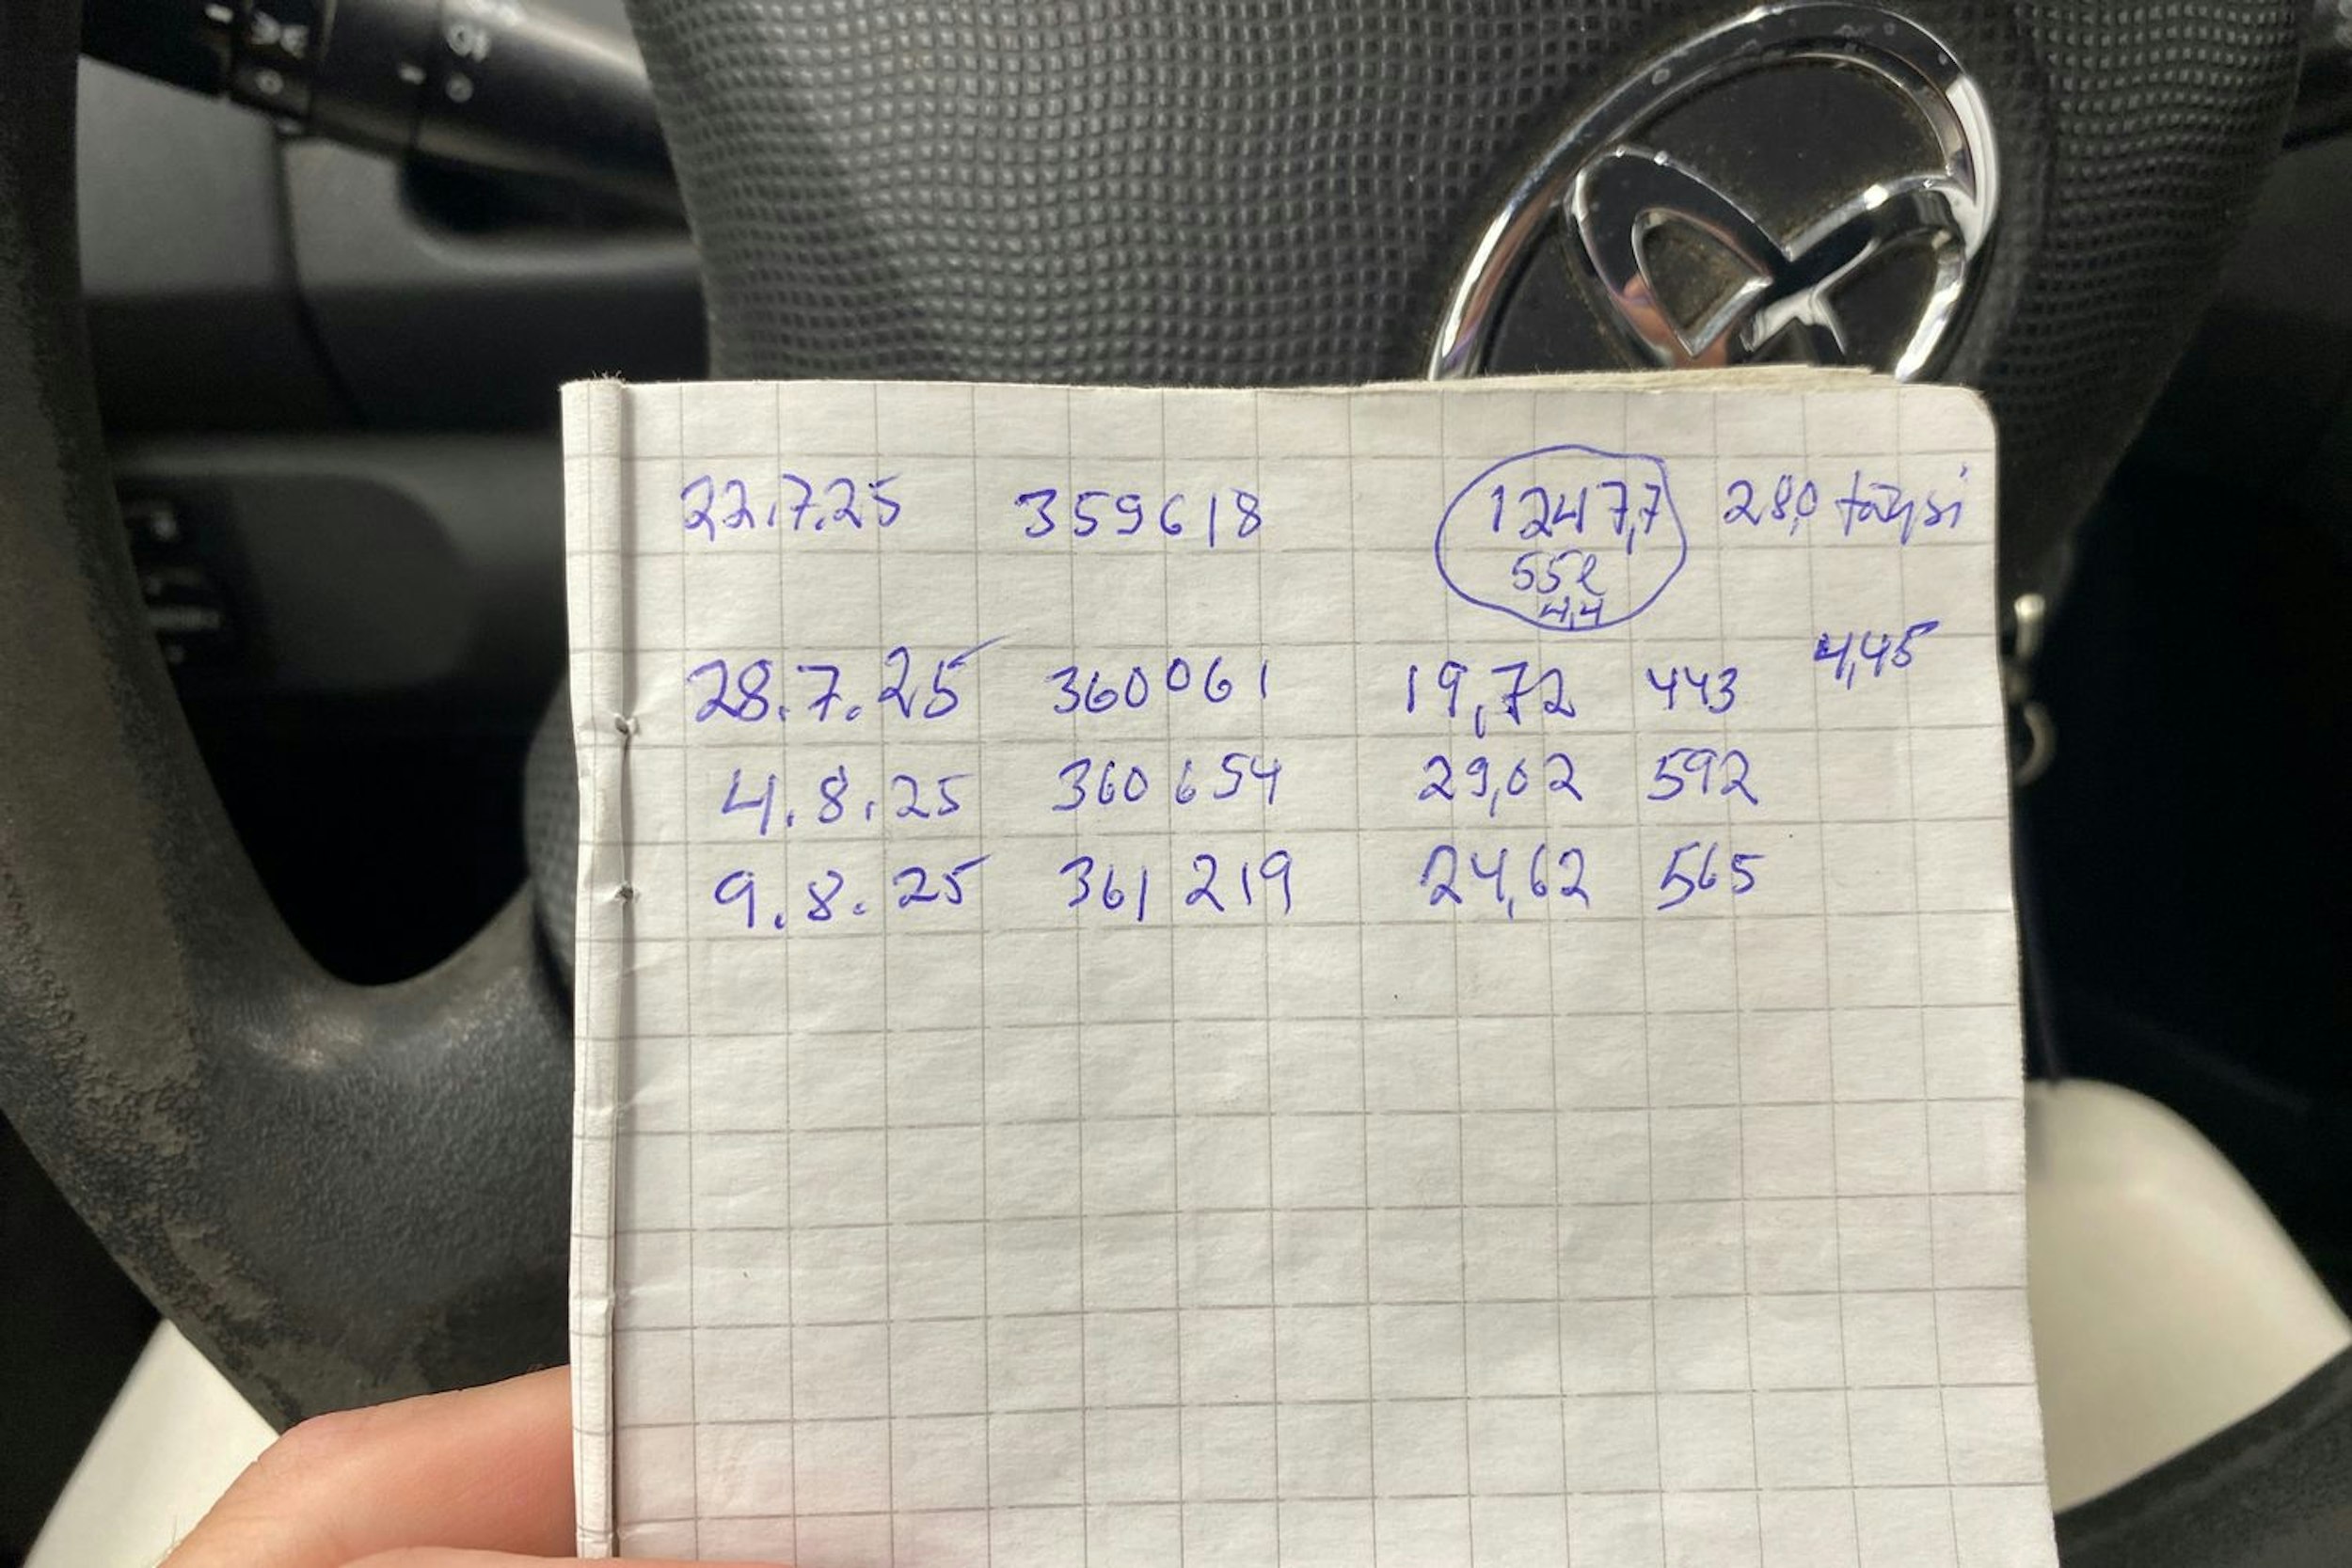 22.7.25 359618 1247,7 28,0 täysi
55l
4,4
28.7.25 360061 19,72 443 4,45
4.8.25 360654 29,02 592
9.8.25 361219 24,62 565